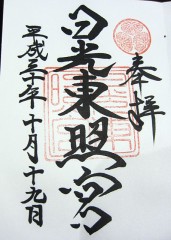 奉拝
日光東照宮
平成三十年十月十九日